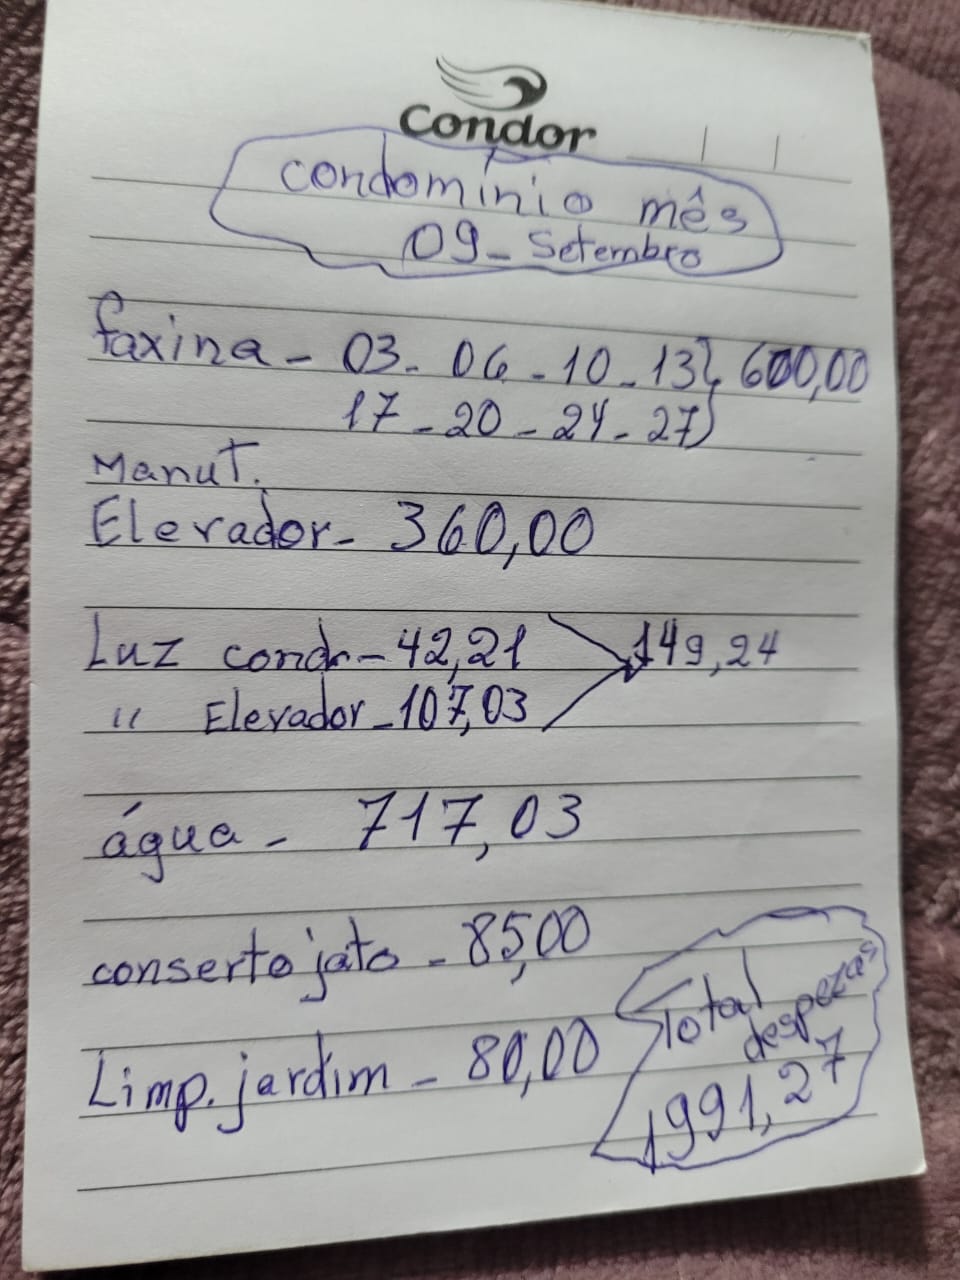 Condor
condomínio mês
09_ Setembro
faxina - 03- 06 - 10 - 13 } 600,00
17 - 20 - 24 - 27
Manut.
Elevador - 360,00
Luz cond - 42,21
149,24
" Elevador - 107,03
água - 717,03
conserto jato - 85,00
Limp. jardim - 80,00
Total
despezas
1991,27